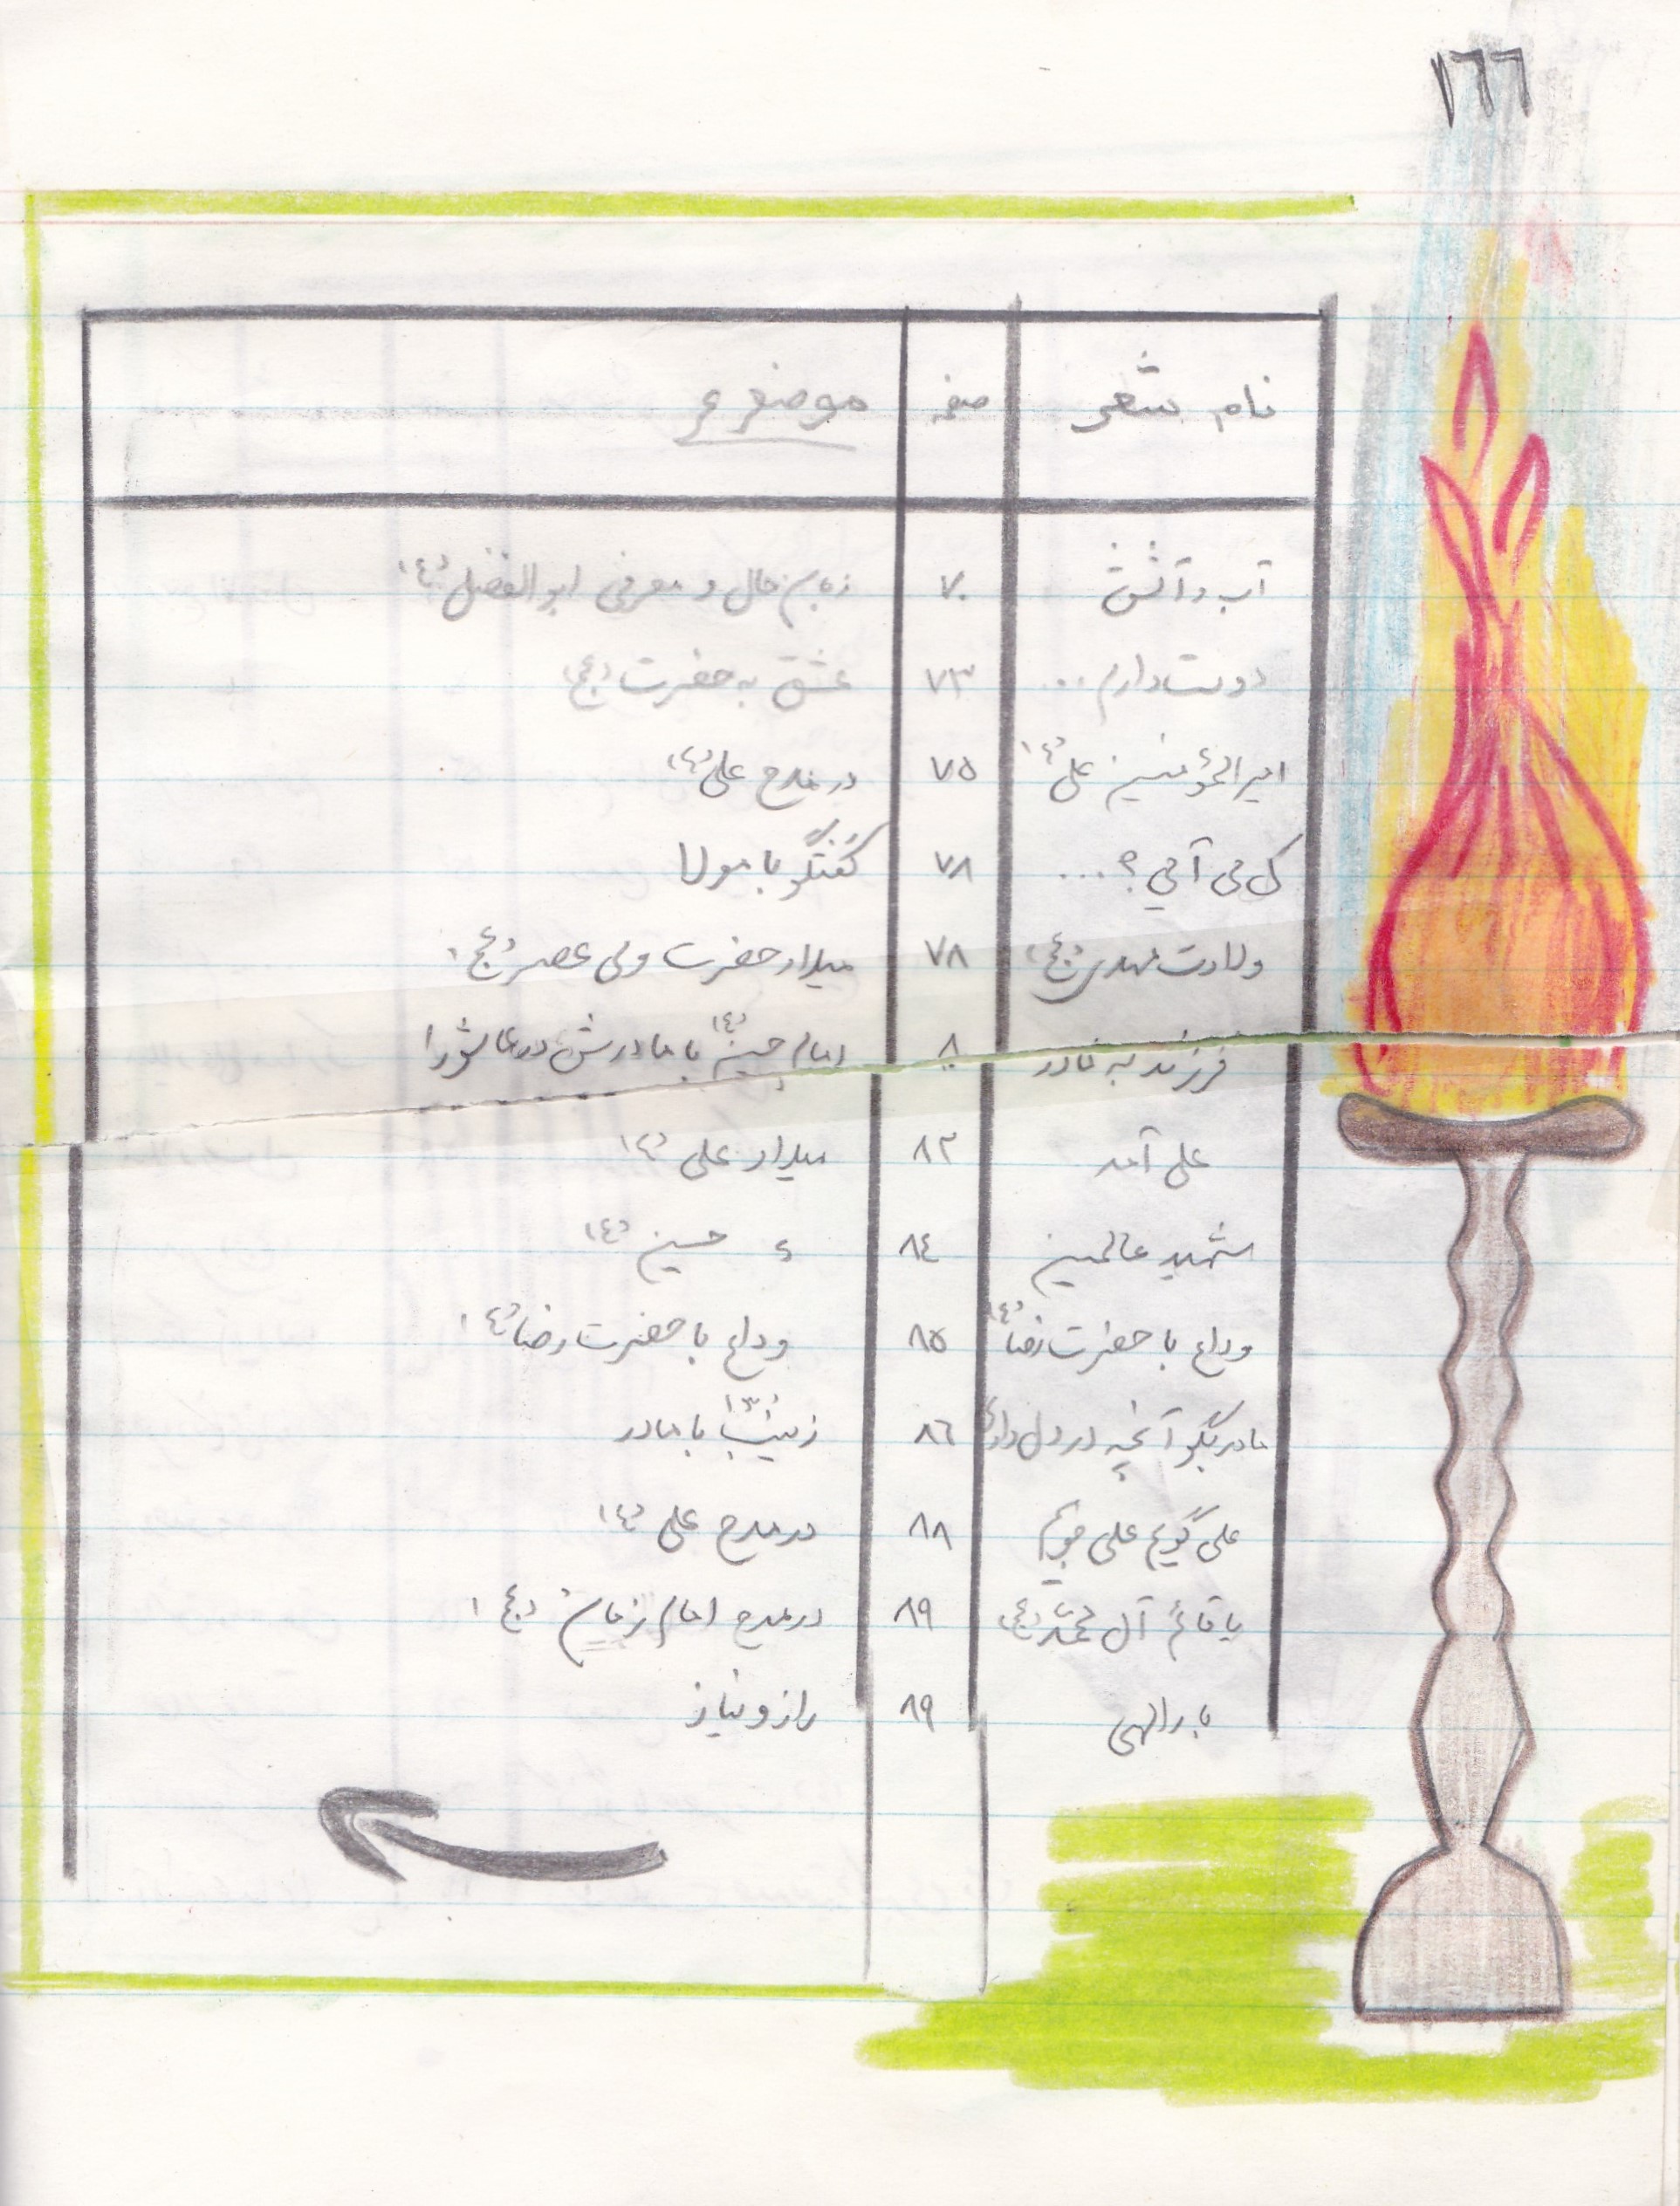 ۱۶۶
نام شعر صفحه موضوع
آب و آتش ۷۰ زبان حال و معرفی ابوالفضل (ع)
دوستت دارم ... ۷۳ عشق به حضرت (عج)
امیرالمؤمنین علی (ع) ۷۵ در مدح علی (ع)
کی می آئی؟ ... ۷۸ گفتگو با مولا
ولادت مهدی (عج) ۷۸ میلاد حضرت ولی عصر (عج)
فرزند به مادر ۸۰ امام حسین (ع) با مادرش در عاشورا
علی آمد ۸۳ میلاد علی (ع)
شهید عالمین ۸۴ ء حسین (ع)
وداع با حضرت رضا (ع) ۸۵ وداع با حضرت رضا (ع)
مادر بگو آنچه در دل داری ۸۶ زینب (س) با مادر
علی گویم علی جویم ۸۸ در مدح علی (ع)
یا قائم آل محمد (عج) ۸۹ در مدح امام زمان (عج)
بارالهی ۸۹ راز و نیاز